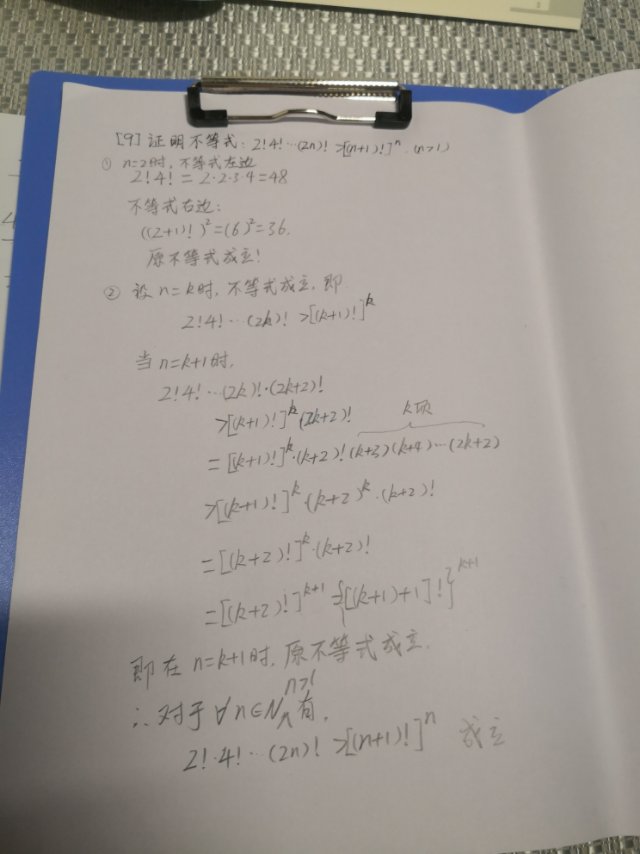 [9] 证明不等式: 2!4!…(2n)! >[(n+1)!]ⁿ. (n>1)
① n=2时, 不等式左边
2!4! = 2·2·3·4=48
不等式右边:
((2+1)!)²=(6)²=36.
原不等式成立!
② 设 n=k时, 不等式成立, 即.
2!4!…(2k)! >[(k+1)!]ᵏ
当 n=k+1时,
2!4!…(2k)!·(2k+2)!
>[(k+1)!]ᵏ(2k+2)!
k项
=[(k+1)!]ᵏ·(k+2)!(k+3)(k+4)…(2k+2)
>[(k+1)!]ᵏ·(k+2)ᵏ·(k+2)!
=[(k+2)!]ᵏ·(k+2)!
=[(k+2)!]ᵏ⁺¹={[(k+1)+1]!}ᵏ⁺¹
即在 n=k+1时, 原不等式成立.
n>1
∴对于∀n∈N, 有,
2!·4!…(2n)! >[(n+1)!]ⁿ 成立